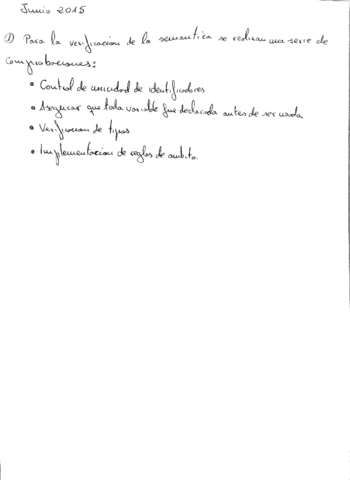 Junio 2015
① Para la verificacion de la semantica se realizan una serie de
comprobaciones:
• Control de unicidad de identificadores
• Asegurar que toda variable fue declarada antes de ser usada
• Verificacion de tipos
• Implementacion de reglas de ambito.